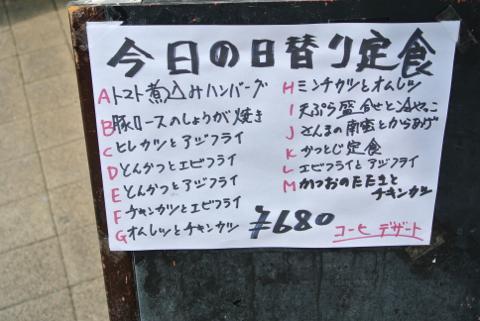 今日の日替り定食
A トマト煮込みハンバーグ
B 豚ロースのしょうが焼き
C ヒレカツとアジフライ
D とんかつとエビフライ
E とんかつとアジフライ
F チキンカツとエビフライ
G オムレツとチキンカツ
H ミンチカツとオムレツ
I 天ぷら盛合せと冷やっこ
J さんまの南蛮とからあげ
K かつとじ定食
L エビフライとアジフライ
M かつおのたたきと
チキンカツ
¥680
コーヒ デザート